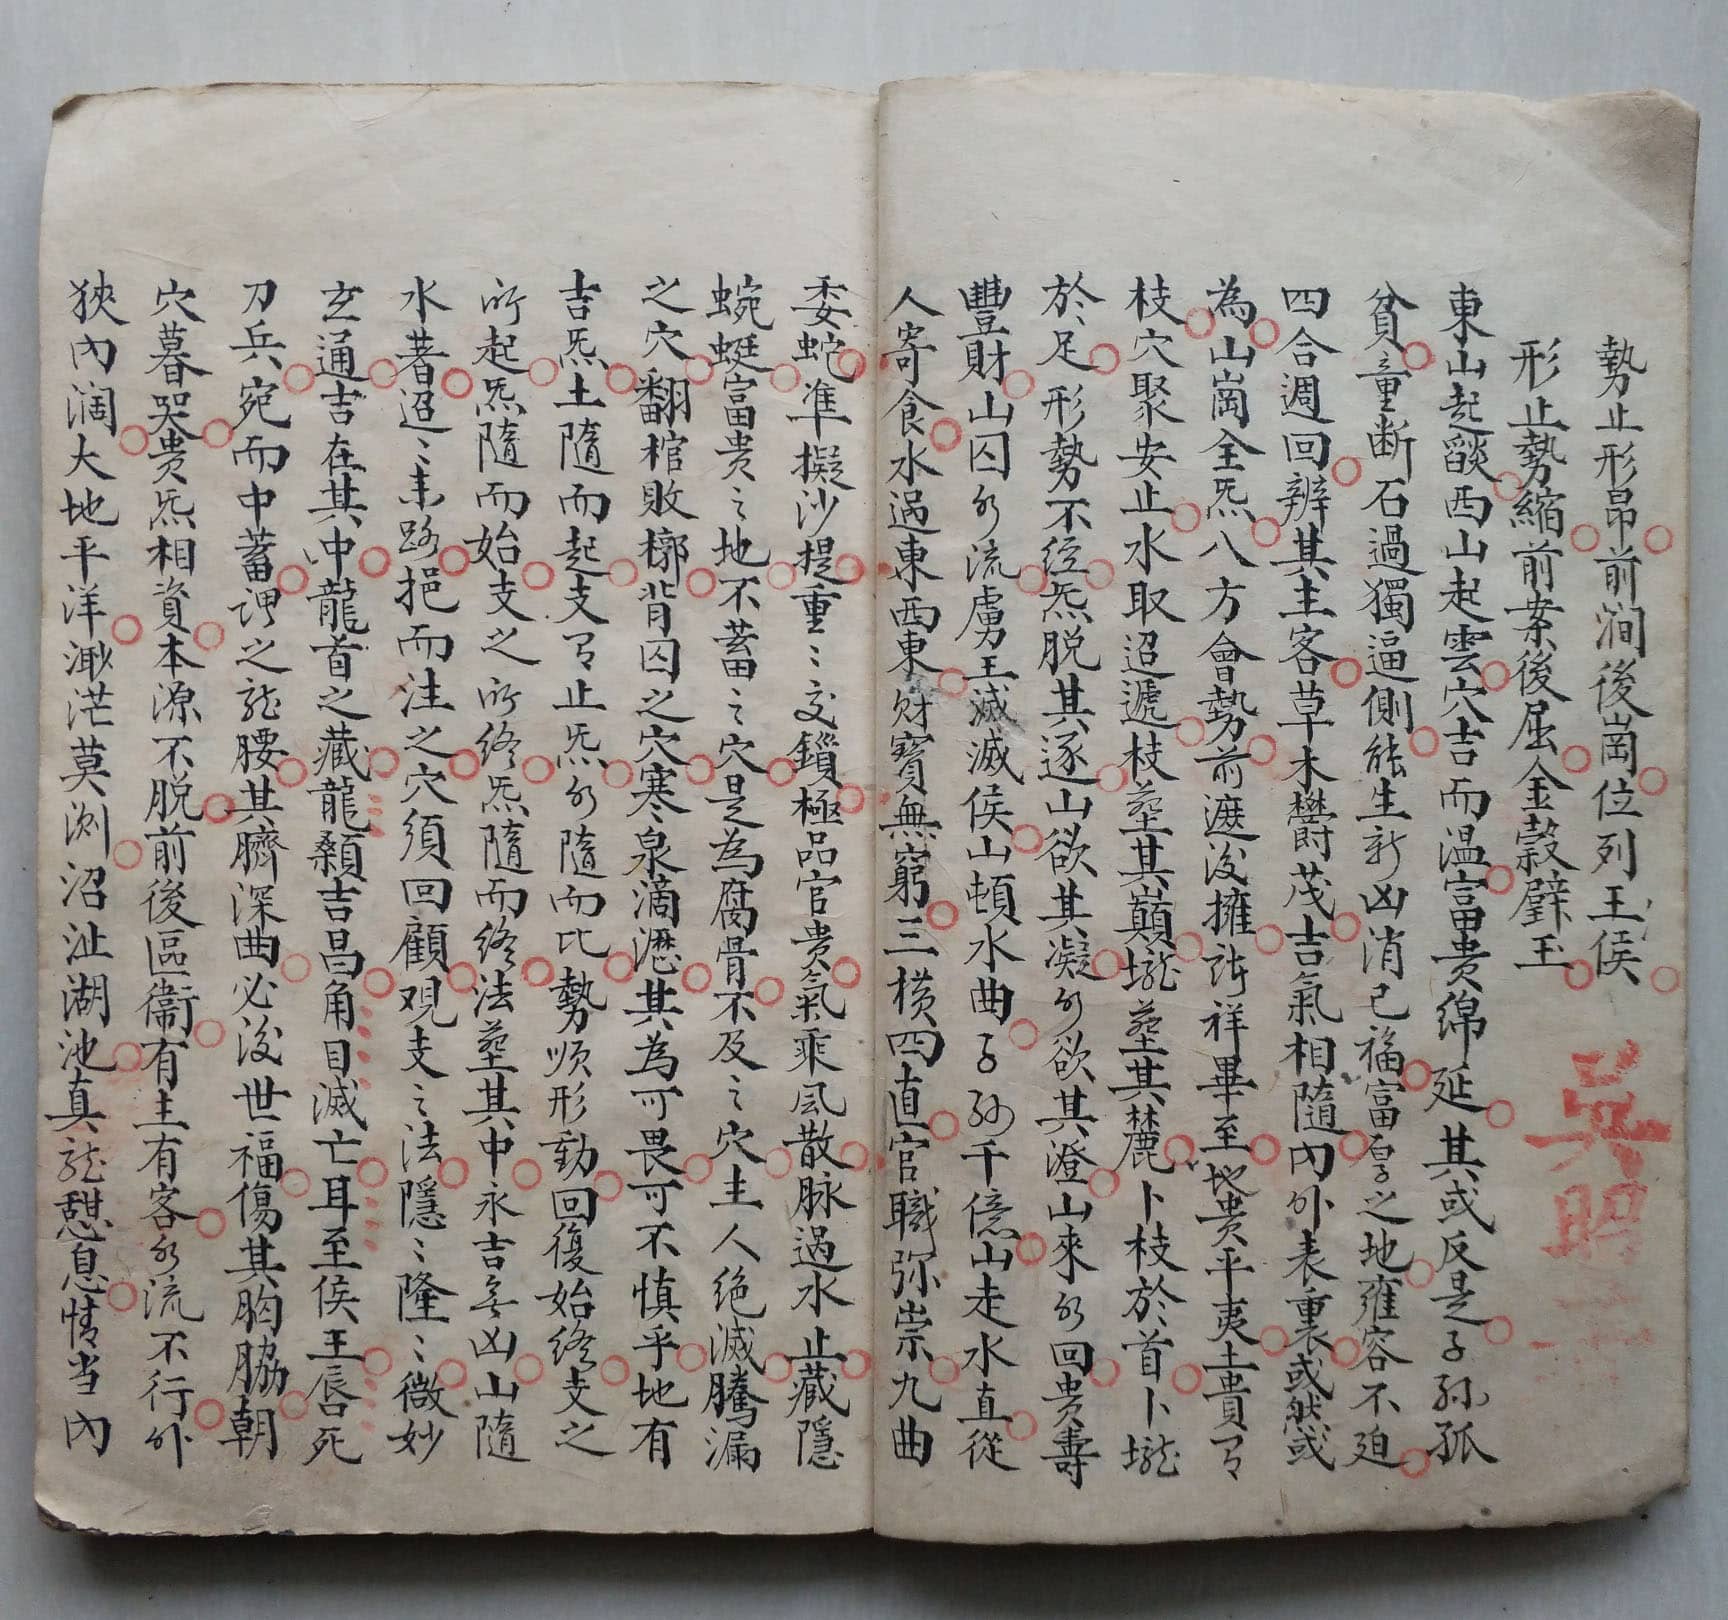 勢止形昂前澗後崗位列王侯
形止勢縮前案後屈金穀璧玉
東山起燄西山起雲穴吉而温富貴綿延其或反是子孫孤
貧童断石過獨逼側能生新凶消已福富厚之地雍容不迫
四合週回辨其主客草木欝茂吉氣相隨內外表裏或然或
為山崗全炁八方會勢前遮後擁諸祥畢至地貴平夷土貴有
枝穴聚安止水取迢遞枝塟其巔壠塟其麓卜枝於首卜壠
於足形勢不経炁脱其逐山欲其凝水欲其澄山來水回貴壽
豐財山囚水流虜王滅滅侯山頓水曲子孫千億山走水直從
人寄食水過東西東財寳無窮三横四直官職弥崇九曲
委蛇準擬沙提重〻交鎖極品官貴氣乘風散脉過水止藏隱
蜿蜒富貴之地不蓄之穴是為腐骨不及之穴主人绝滅騰漏
之穴翻棺敗槨背囚之穴寒泉滴瀝其為可畏可不慎乎地有
吉炁土隨而起支有止炁水隨而比勢順形動回復始终支之
所起炁隨而始支之所终炁隨而终法塟其中永吉無凶山隨
水著迢〻来路挹而注之穴須回顧观支之法隱〻隆〻微妙
玄通吉在其中龍首之藏龍顙吉昌角目滅亡耳至侯王唇死
刀兵宛而中蓄謂之龍腰其臍深曲必後世福傷其胸脇朝
穴暮哭貴炁相資本源不脱前後區衛有主有客水流不行外
狹內阔大地平洋渺茫莫测沼沚湖池真龍憇息情当內
吳